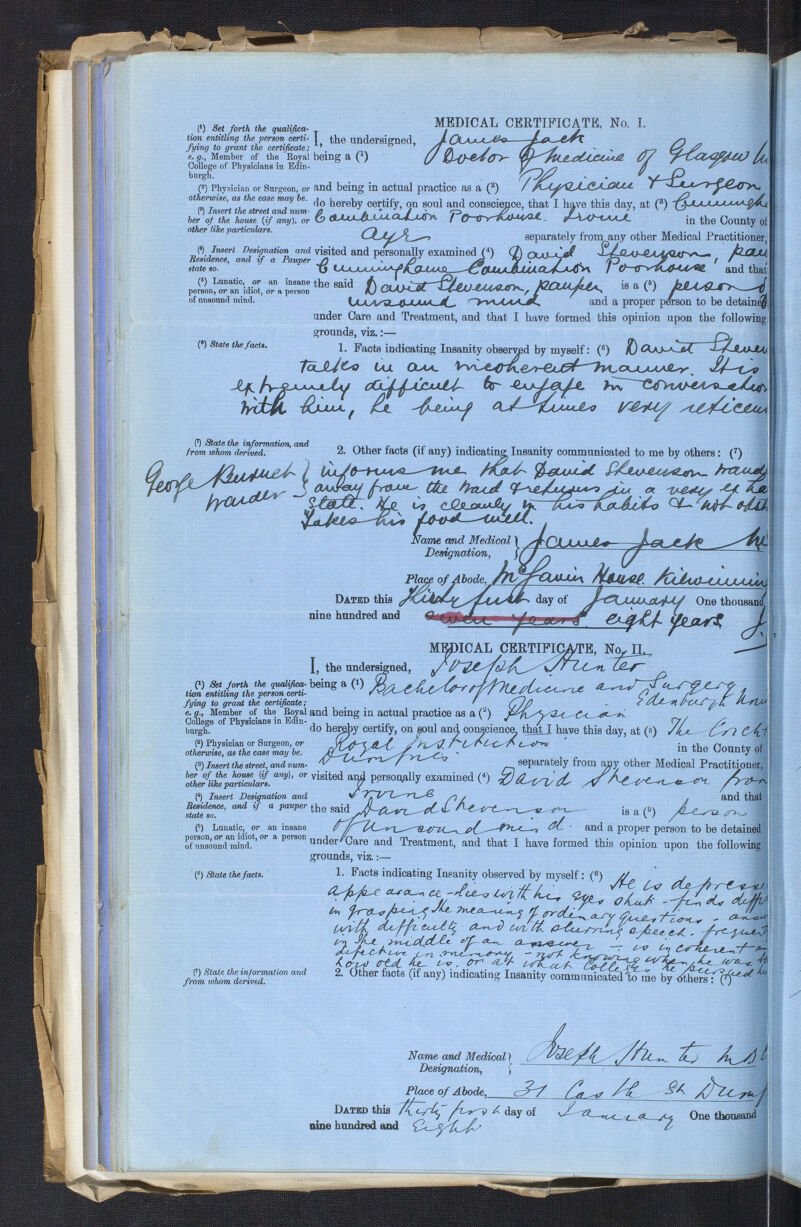 MEDICAL CERTIFICATE, No. I.
(1) Set forth the qualifica-
tion entitling the person certi-
fying to grant the certificate;
e.g., Member of the Royal
College of Physicians in Edin-
burgh.
(2) Physician or Surgeon, or
otherwise, as the case may be.
(3) Insert the street and num-
ber of the house (if any), or
other like particulars.
(4) Insert Designation and
Residence, and if a Pauper
state so.
(5) Lunatic, or an insane
person, or an idiot, or a person
of unsound mind.
I, the undersigned, James Jack
being a (1) Doctor of Medicine of Glasgow
and being in actual practice as a (2) Physician & Surgeon
do hereby certify, on soul and conscience, that I have this day, at (3) Cunningha
Combination Poorhouse Irvine in the County of
Ayr separately from any other Medical Practitioner,
visited and personally examined (4) David Stevenson, pau
Cunninghame Combination Poorhouse and that
the said David Stevenson, pauper is a (5) person o
unsound mind and a proper person to be detained
under Care and Treatment, and that I have formed this opinion upon the following
grounds, viz.:—
(6) State the facts.
1. Facts indicating Insanity observed by myself: (6) David Steven
talks in an incoherent manner. It is
extremely difficult to engage in conversation
with him, he being at times very reticen
(7) State the information, and
from whom derived.
2. Other facts (if any) indicating Insanity communicated to me by others: (7)
George
Warder
informs me that David Stevenson wand
away from the ward & returns in a very
state. He is cleanly in his habits & not
Takes his food well.
Name and Medical
Designation,
James Jack
Place of Abode, McGavin House Kilwinnin
DATED this Thirty first day of January One thousand
nine hundred and seven years eight years J.J.
MEDICAL CERTIFICATE, No. II.
(1) Set forth the qualifica-
tion entitling the person certi-
fying to grant the certificate;
e.g., Member of the Royal
College of Physicians in Edin-
burgh.
(2) Physician or Surgeon, or
otherwise, as the case may be.
(3) Insert the street, and num-
ber of the house (if any), or
other like particulars.
(4) Insert Designation and
Residence, and if a pauper
state so.
(5) Lunatic, or an insane
person, or an idiot, or a person
of unsound mind.
I, the undersigned, Joseph Hunter
being a (1) Bachelor of Medicine and Surgery
Edinburgh Univ
and being in actual practice as a (2) Physician
do hereby certify, on soul and conscience, that I have this day, at (3) The Cricht
Royal Institution in the County of
Dumfries separately from any other Medical Practitioner,
visited and personally examined (4) David Stevenson from
Irvine and that
the said David Stevenson is a (5) person
of unsound mind. and a proper person to be detained
under Care and Treatment, and that I have formed this opinion upon the following
grounds, viz.:—
(6) State the facts.
1. Facts indicating Insanity observed by myself: (6) He is depresse
appearance - lies with his eyes shut - finds diffi
in grasping the meaning of ordinary questions - answ
with difficulty and with slurring speech - frequent
in the middle of an answer - is incoherent a
defective in memory - not knowing when he was
how old he is, or at what Colleges he pursued
(7) State the information and
from whom derived.
2. Other facts (if any) indicating Insanity communicated to me by others: (7)
Name and Medical
Designation,
Joseph Hunter M B
Place of Abode, 31 Castle St Dumf
DATED this thirty first day of January One thousand
nine hundred and Eight